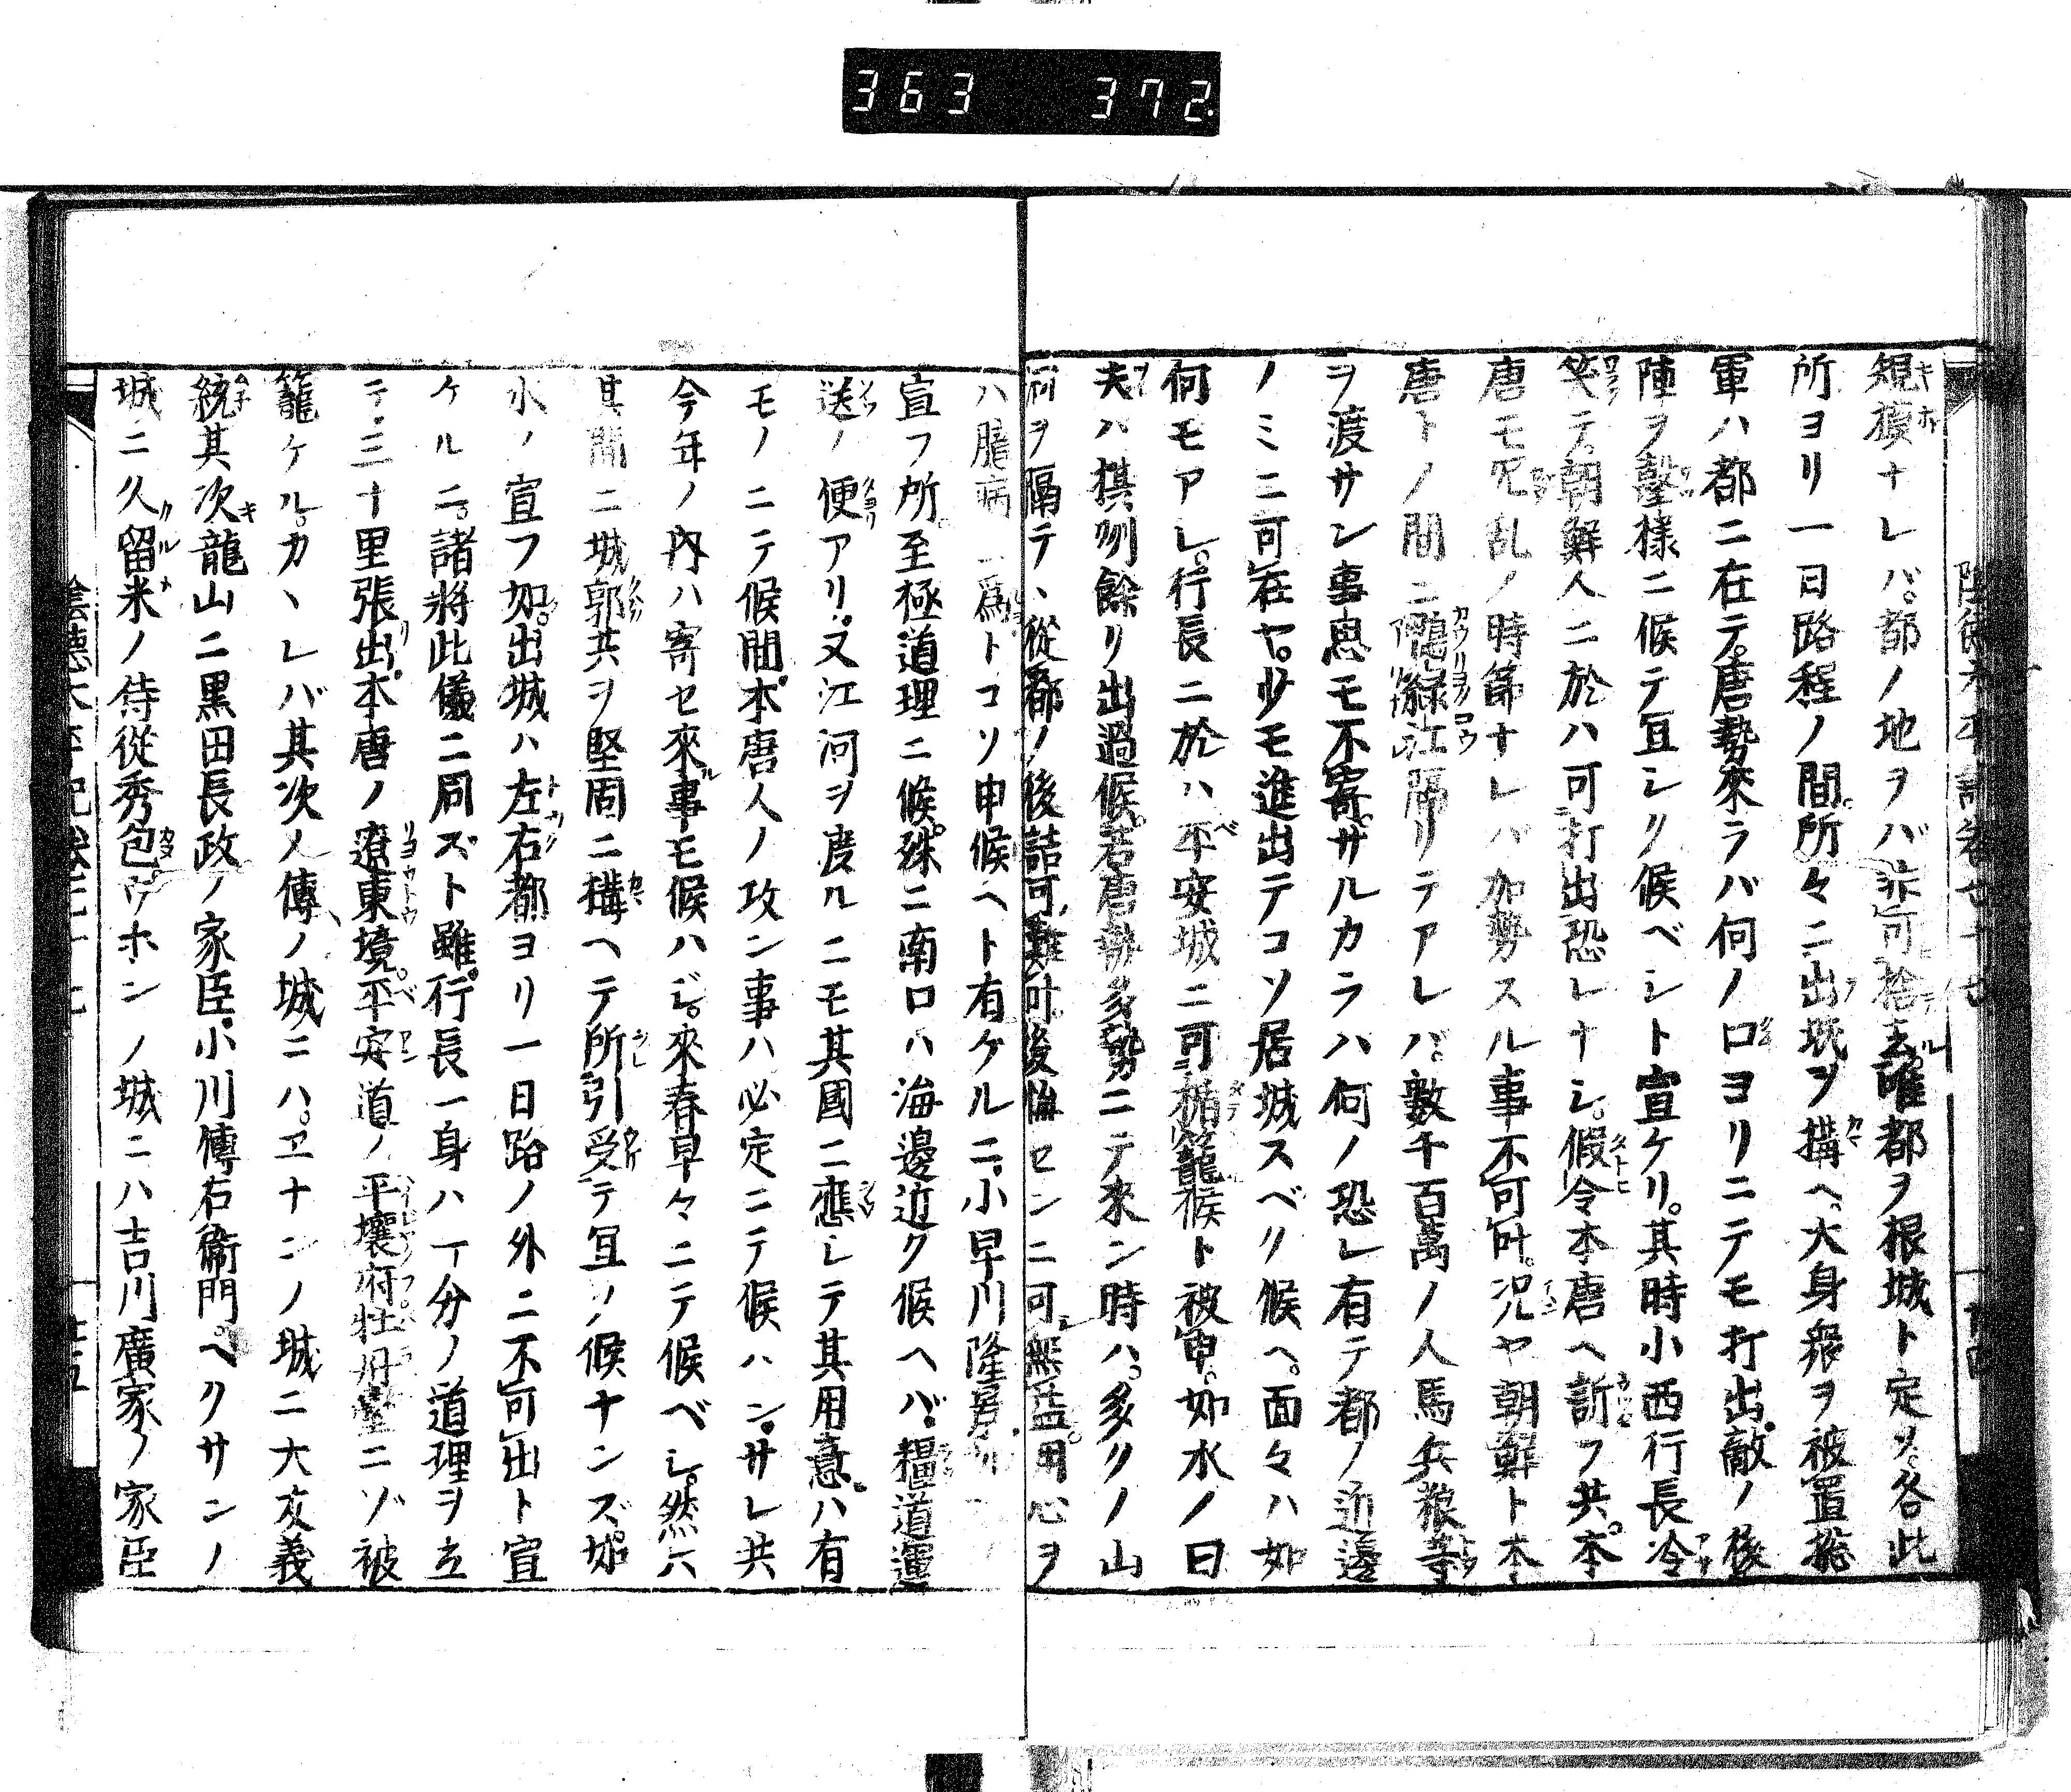 363 372
規模ナレバ。都ノ地ヲバ非可捨去。唯都ヲ根城ト定メ。各此
所ヨリ一日路程ノ間。所々ニ出城ヲ構ヘ。大身衆ヲ被置。総
軍ハ都ニ在テ。唐勢来ラバ何ノ口ヨリニテモ打出。敵ノ後
陣ヲ撃様ニ候テ宜シク候ベシト宣ケリ。其時小西行長冷
笑テ。朝鮮人ニ於ハ可打出恐レナシ。仮令本唐ヘ訴フ共。本
唐モ兵乱ノ時節ナレバ加勢スル事不可叶。況ヤ朝鮮ト本
唐トノ間ニ鴨緑江隔リテアレバ。数千百萬ノ人馬兵粮等
ヲ渡サン事思モ不寄。サルカラハ何ノ恐レ有テ都ノ近邊
ノミニ可在ヤ。少モ進出テコソ居城スベク候ヘ。面々ハ如
何モアレ。行長ニ於ハ平安城ニ可楯籠候ト被申。如水ノ曰
夫ハ摂州餘リ出過候。若唐勢多勢ニテ来ン時ハ。多クノ山
河ヲ隔テヽ従都ノ後詰可難叶。後悔センニ可無益。用心ヲ
ハ臆病ニ為トコソ申候ヘト有ケルニ。小早川隆景
宣フ所。至極道理ニ候。殊ニ南口ハ海邊近ク候ヘバ。糧道運
送ノ便アリ。又江河ヲ度ルニモ其國ニ應シテ其用意ハ有
モノニテ候間。本唐人ノ攻ン事ハ必定ニテ候ハン。サレ共
今年ノ内ハ寄セ来ル事モ候ハジ。来春早々ニテ候ベシ。然バ
其間ニ城郭共ヲ堅固ニ構ヘテ所引受テ宜ク候ナンズ。如
水ノ宣フ如。出城ハ左右都ヨリ一日路ノ外ニ不可出ト宣
ケルニ。諸将此儀ニ同ズト雖。行長一身ハ一分ノ道理ヲ立
テ。三十里張出。本唐ノ遼東境。平安道ノ平壌府牡丹臺ニゾ被
籠ケル。カヽレバ其次ノ傳ノ城ニハ。ヱナンノ城ニ大友義
統其次龍山ニ黒田長政ノ家臣。小川傳右衛門。ペクサンノ
城ニ久留米ノ侍従秀包。ウホンノ城ニハ吉川廣家ノ家臣